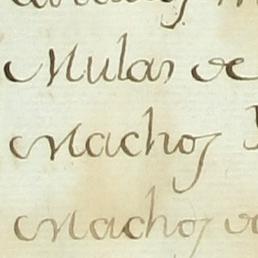 Mulas de
Machos
Machos de